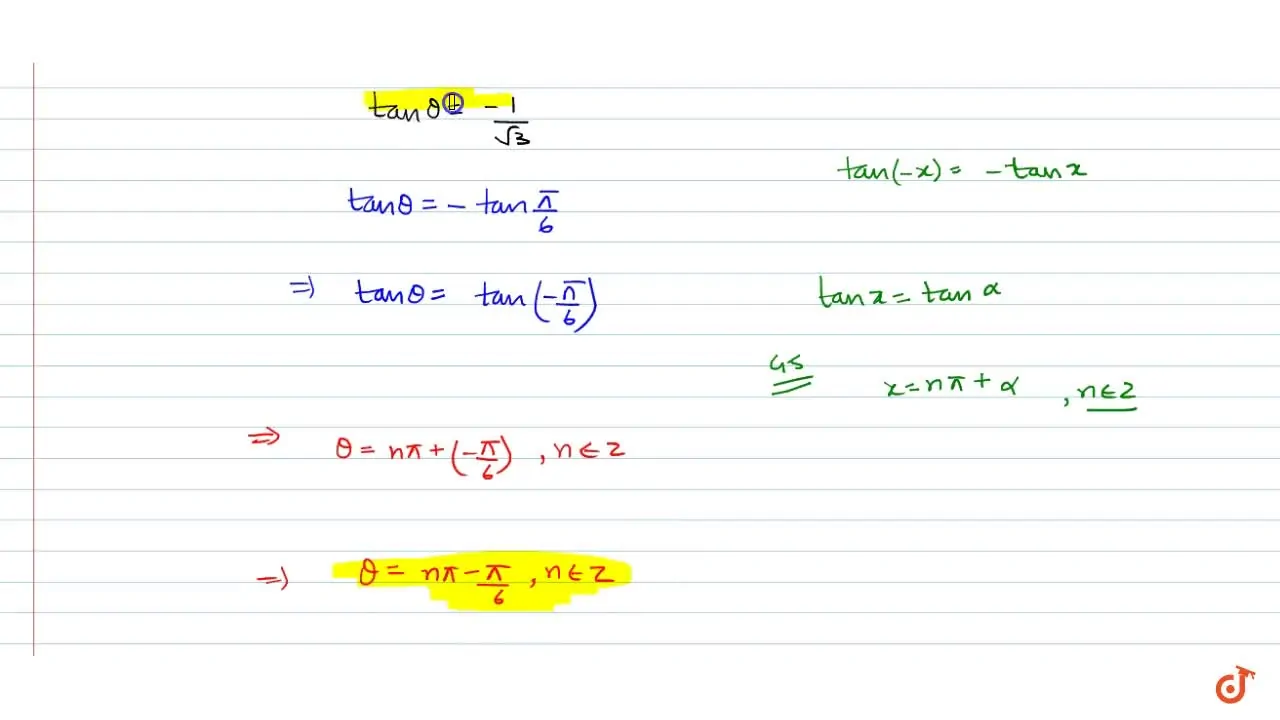 tanθ = - 1/√3
tan(-x) = - tan x
tanθ = - tan π/6
⇒ tanθ = tan (-π/6)
tan x = tan α
GS
x = nπ + α , n ∈ Z
⇒ θ = nπ + (-π/6) , n ∈ Z
⇒ θ = nπ - π/6 , n ∈ Z